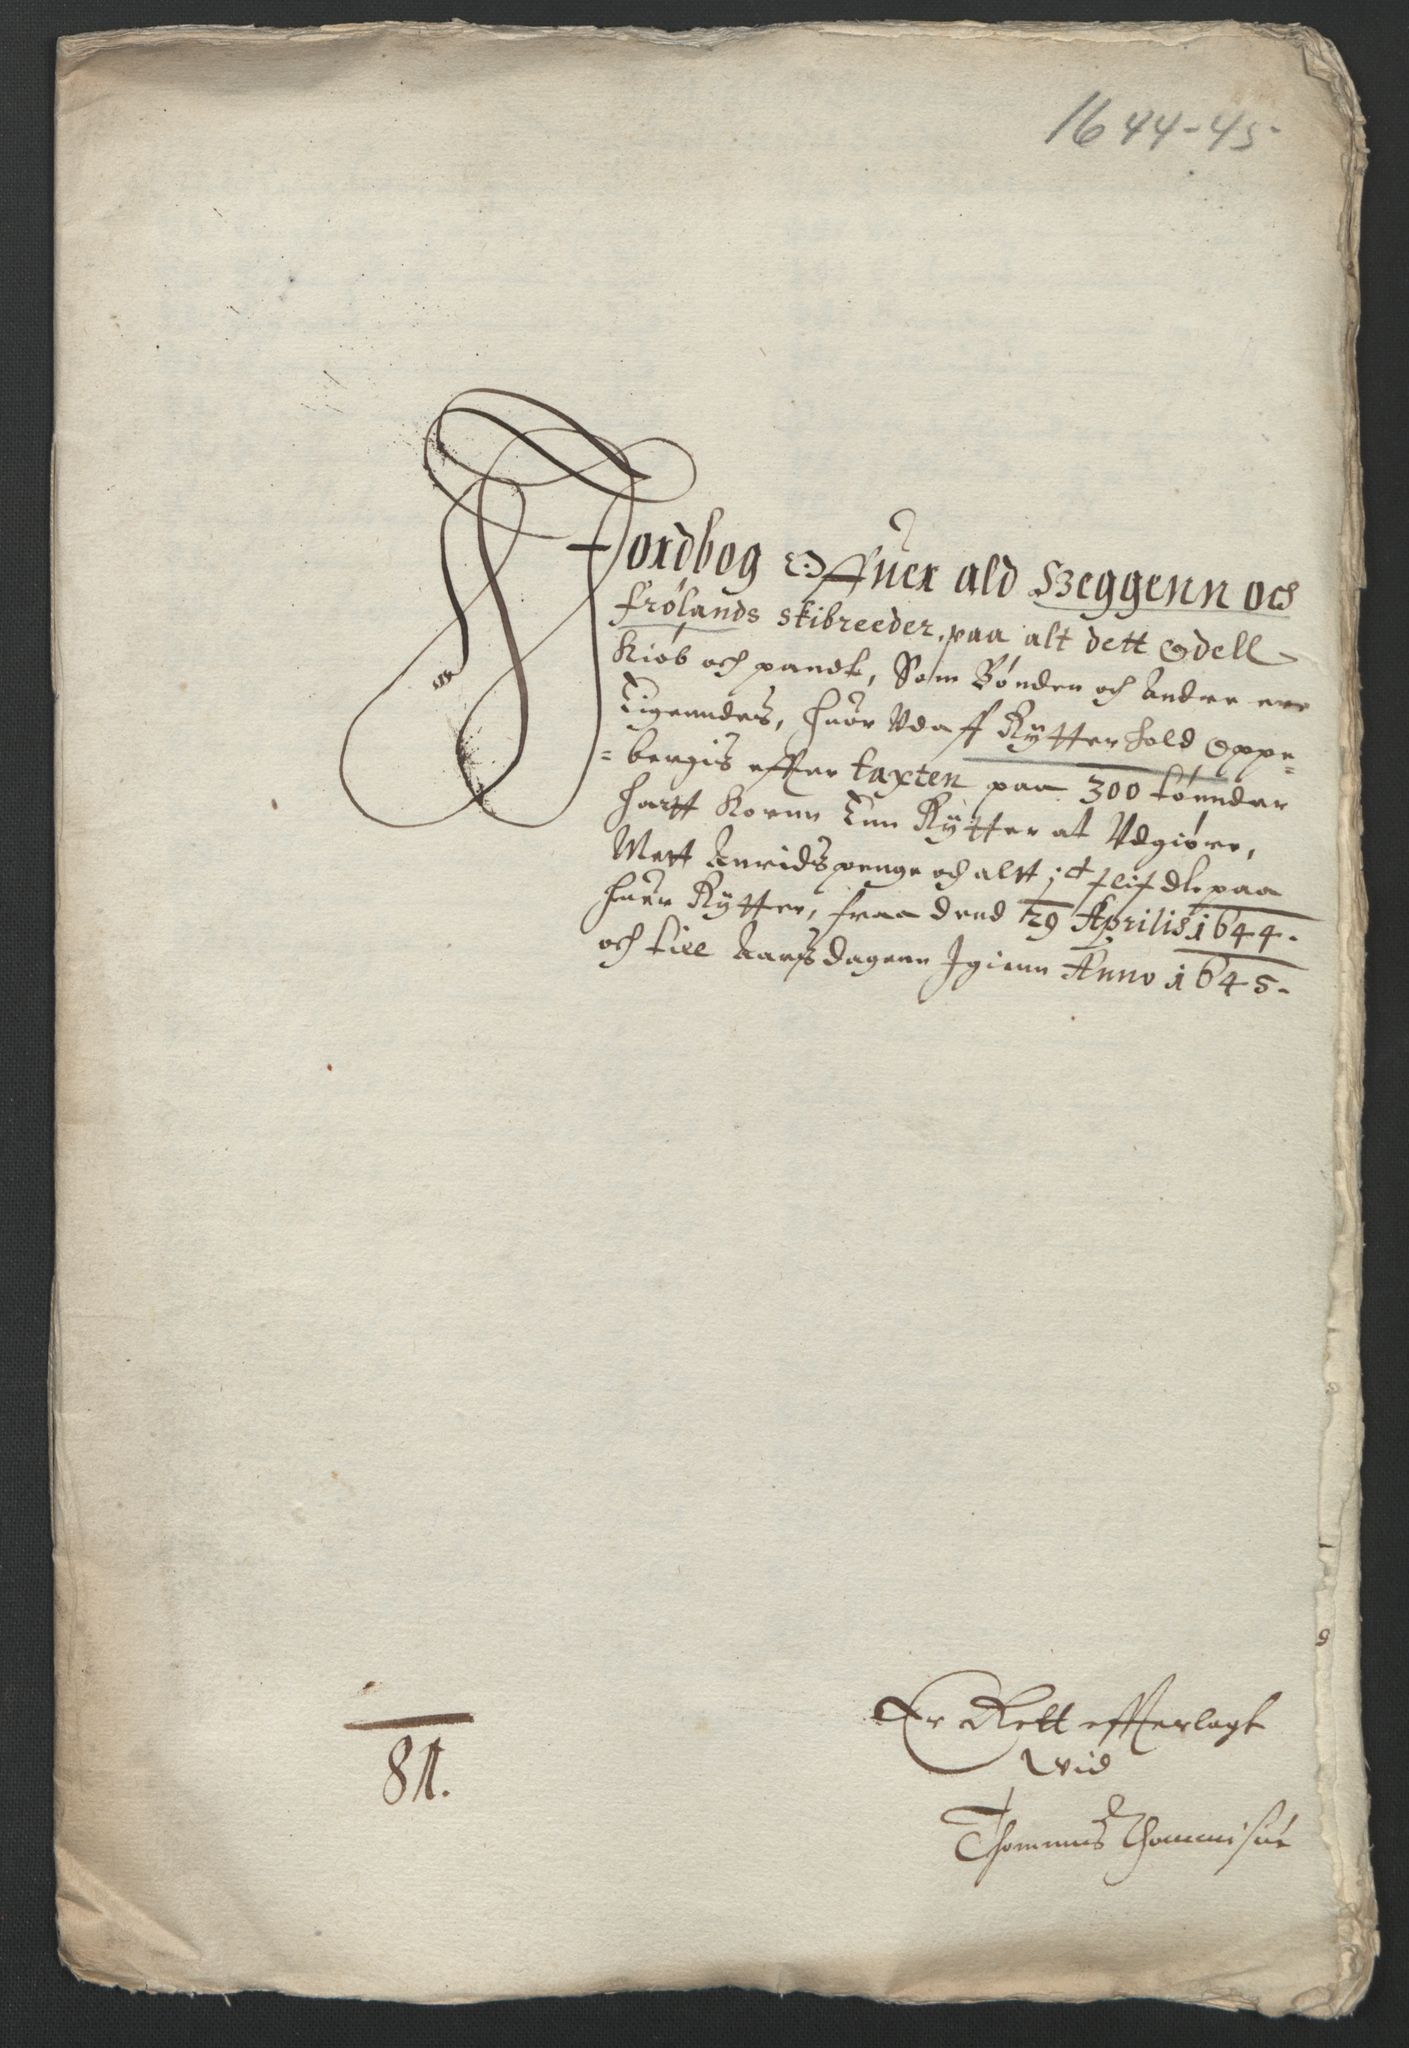 1644-45.
Jordbog Offuer ald Heggenn och
frølands skibreeder, paa alt dett Odell
Kiøb och pandt, Som Bønder och Andre ere
Eigenndes, huor Vdaff Rÿtterhold Oppe=
=bergis effter taxten paa 300 tønnder
hartt Kornn Enn Rÿtter at Vdgiøre,
Mett Anridspenge och altt paa
huer Rÿtter, fraa dend 29 Aprilis 1644.
och till Aarsdagenn Igienn Anno 1645.
Er Rett effterlagt
wid
Thommes Thommissøn
81.